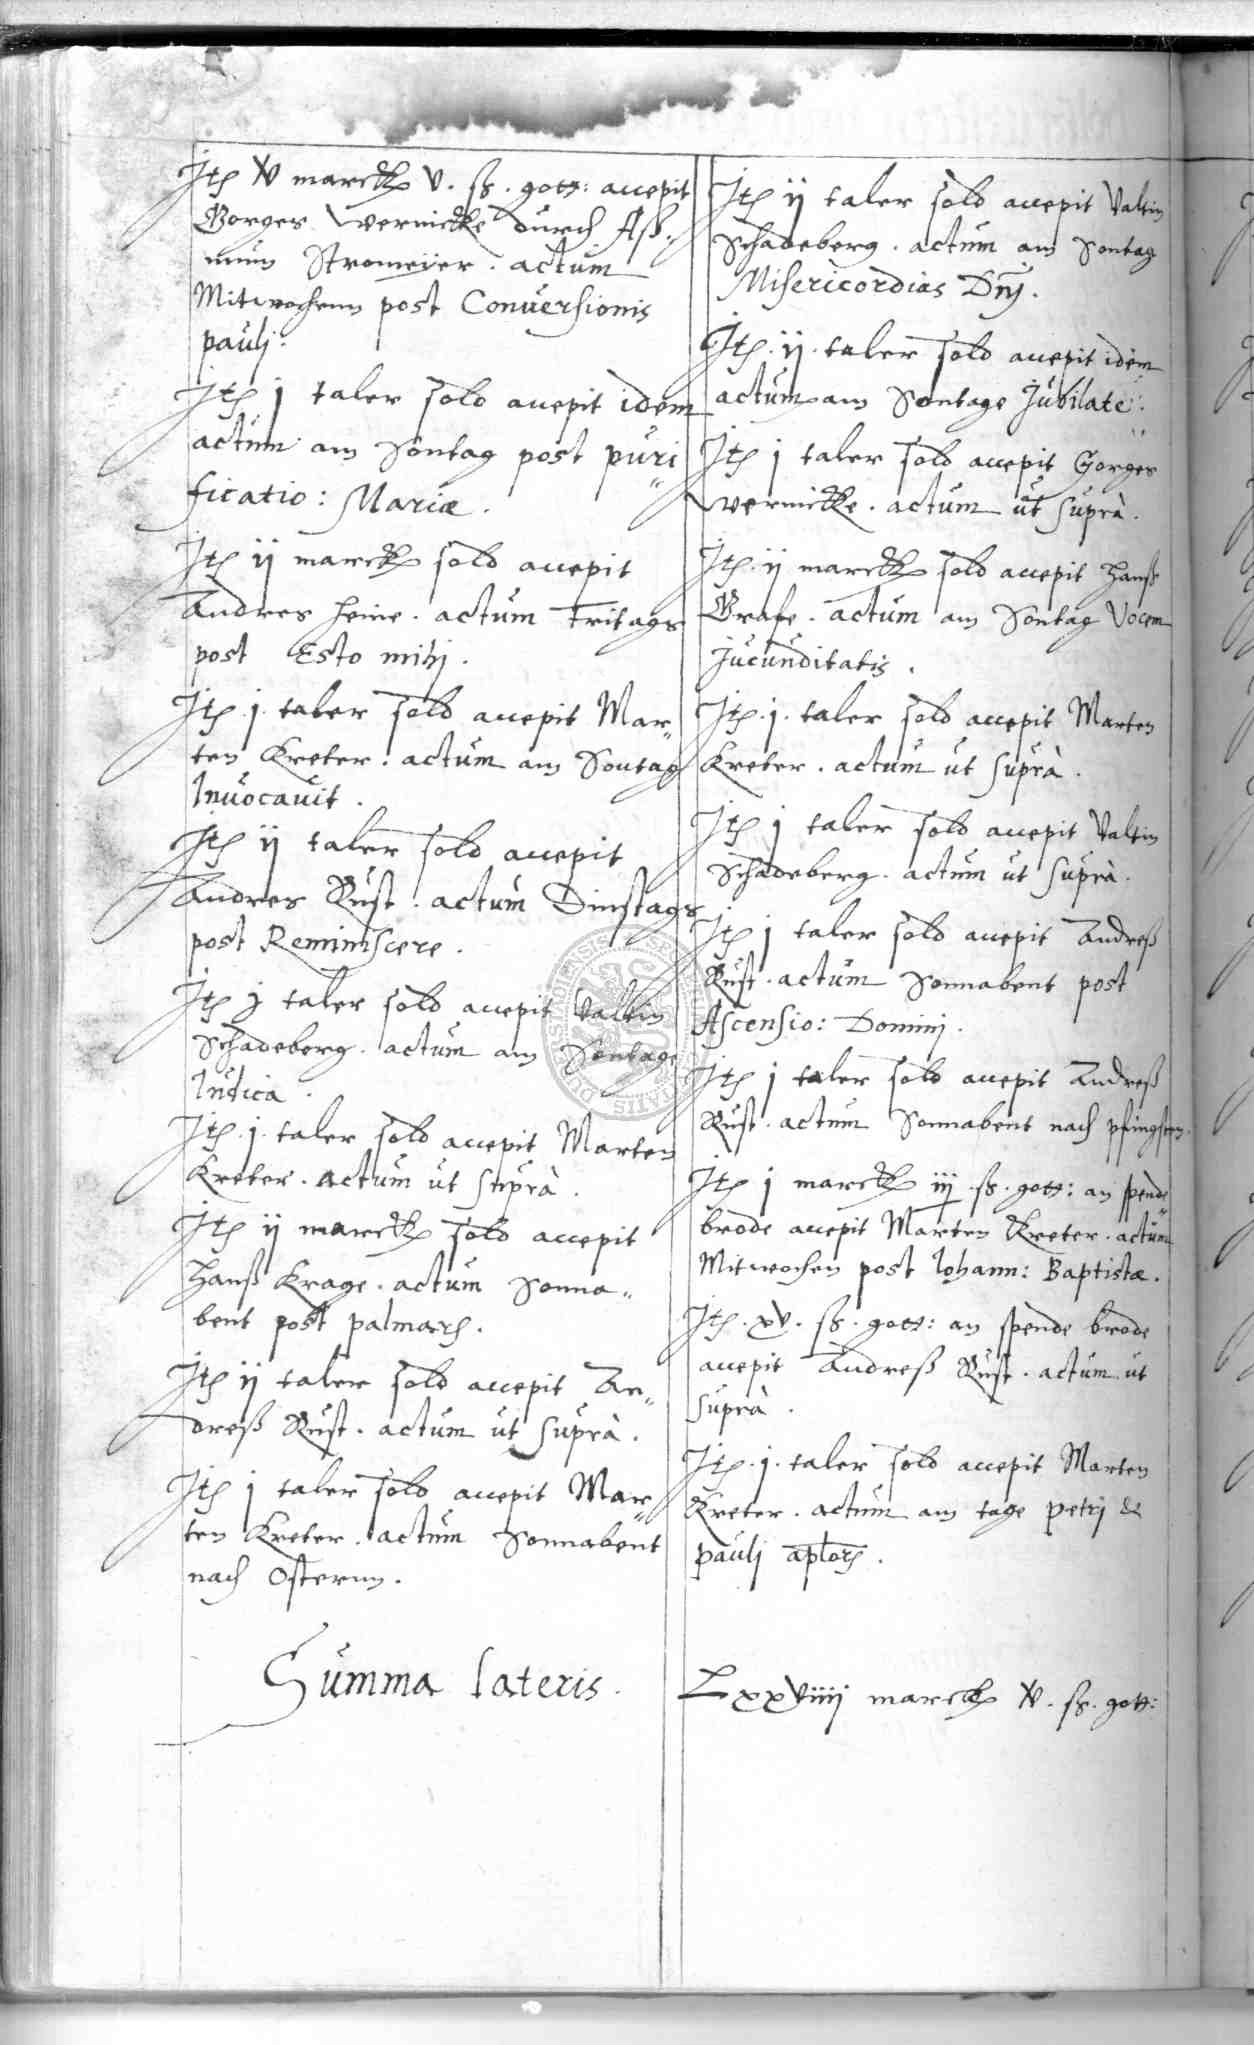 Jtem XV marckh V. ß. gott: accepit
Gorges Wernickhe durch Aß-
mum Stromeÿer. actum
Mitwochenn post Conuersionis
paulj.
Jtem j taler sold accepit idem
actum am Sontag post puri
ficatio: Mariæ.
Jtem ij marckh sold accepit
Andres Heine. actum Fritags
post Esto mihj.
Jtem .j. taler sold accepit Mar,,
ten Kreter. actum am Sontag
Inuocauit.
Jtem ij taler sold accepit
Andres Rust. actum Dinstags
post Reminiscere.
Jtem j taler sold accepit Valtin
Schadeberg. actum am Sontage
Iudica.
Jtem .j. taler sold accepit Marten
Kreter. actum ut suprà.
Jtem ij marckh sold accepit
Hanß Krage. actum Sonna,,
bent post palmarum.
Jtem ij taler sold accepit An,,
dreß Rust. actum ut suprà.
Jtem j taler sold accepit Mar,,
ten Kreter. actum Sonnabent
nach Osternn.
Summa lateris.
Jtem ij taler sold accepit Valtin
Schadeberg. actum am Sontag
Misericordias Dnj.
Jtem .ij. taler sold accepit idem
actum am Sontage Jubilate.
Jtem j taler sold accepit Gorges
Wernickhe. actum ut suprà.
Jtem .ij marckh sold accepit Hanß
actum am Sontag Vocem
Jucunditatis.
Jtem .j. taler sold accepit Marten
Kreter. actum ut suprà.
Jtem j taler sold accepit Valtin
Schadeberg. actum ut suprà.
Jtem j taler sold accepit Andreß
Rust. actum Sonnabent post
Ascensio: Dominj.
Jtem j taler sold accepit Andreß
Rust. actum Sonnabent nach pfingsten.
Jtem j marckh iij .ß. gott: an spende,,
brode accepit Marten Kreter. actum
Mitwochen post Iohann: Baptistæ.
Jtem .xv. ß. gott: an spende brode
accepit Andreß Rust. actum ut
suprà.
Jtem .j. taler sold accepit Marten
Kreter. actum am tage petrj &
paulj aplorum.
LxxViiij marckh XV. ß. gott: